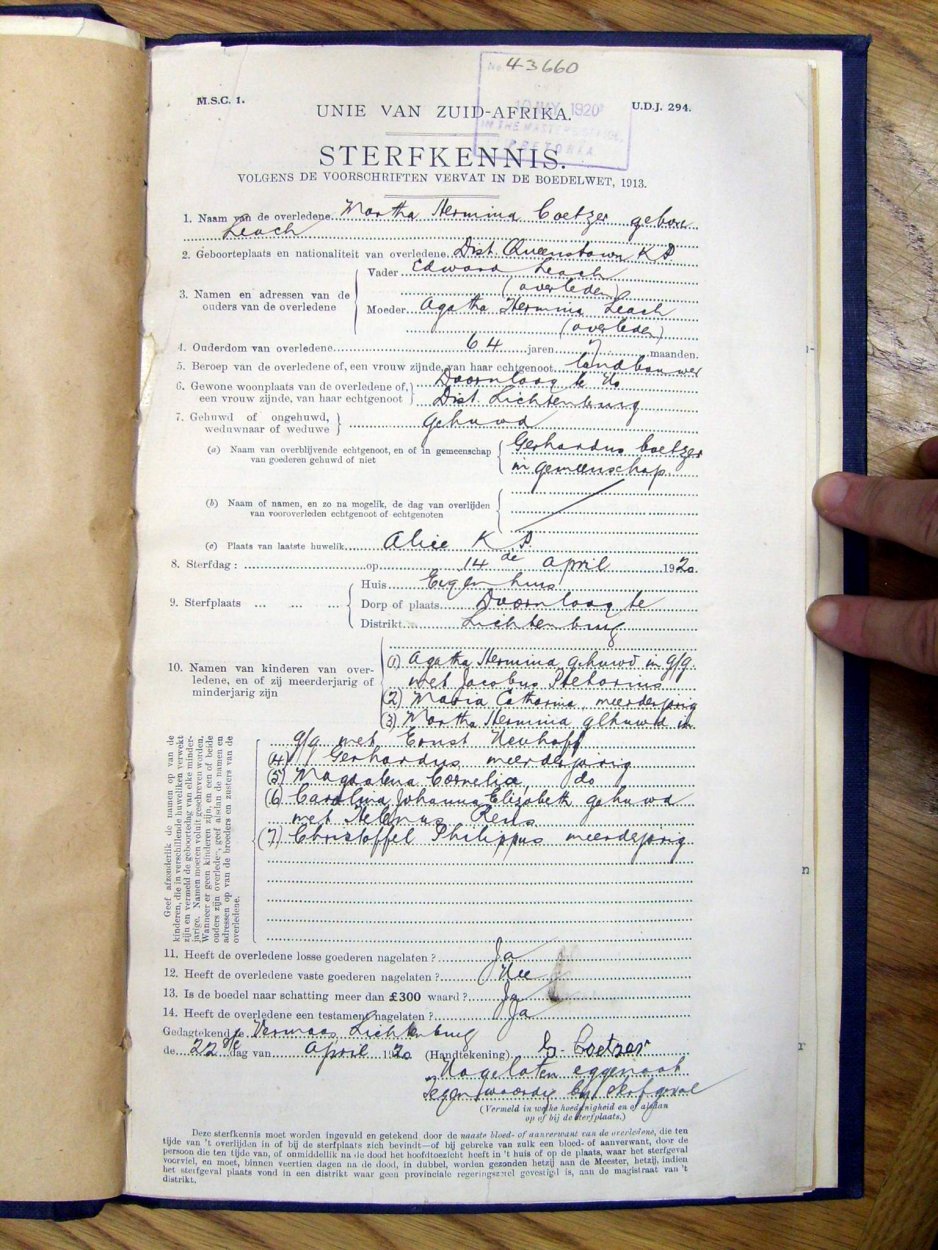 No. 43660
10 MAY 1920
IN THE MASTER'S OFFICE,
PRETORIA
M.S.C. 1.
U.D.J. 294.
UNIE VAN ZUID-AFRIKA.
STERFKENNIS.
VOLGENS DE VOORSCHRIFTEN VERVAT IN DE BOEDELWET, 1913.
1. Naam van de overledene Martha Hermina Coetzer geboren
Leach
2. Geboorteplaats en nationaliteit van overledene Dist. Queenstown K P
3. Namen en adressen van de ouders van de overledene
Vader Edward Leach
(overleden)
Moeder Agatha Hermina Leach
(overleden)
4. Ouderdom van overledene 64 jaren 7 maanden.
5. Beroep van de overledene of, een vrouw zijnde, van haar echtgenoot landbouwer
6. Gewone woonplaats van de overledene of,
een vrouw zijnde, van haar echtgenoot
Doornlaagte
Dist. Lichtenburg
7. Gehuwd of ongehuwd,
weduwnaar of weduwe
gehuwd
(a) Naam van overblijvende echtgenoot, en of in gemeenschap
van goederen gehuwd of niet
Gerhardus Coetzer
in gemeenschap
(b) Naam of namen, en zo na mogelik, de dag van overlijden
van vooroverleden echtgenoot of echtgenoten
(c) Plaats van laatste huwelik Alice K P
8. Sterfdag : op 14 de April 1920
9. Sterfplaats ... ... ...
Huis Eigen huis
Dorp of plaats Doornlaagte
Distrikt Lichtenburg
10. Namen van kinderen van over-
ledene, en of zij meerderjarig of
minderjarig zijn
(1) Agatha Hermina gehuwd in g/g.
met Jacobus Pretorius
(2) Maria Catharina, meerderjarig
(3) Martha Hermina gehuwd in
g/g met Ernst Neuhoff
(4) Gerhardus meerderjarig
(5) Magdalena Cornelia do
(6) Carolina Johanna Elizabeth gehuwd
met
(7) Christoffel Philippus meerderjarig
Geef afzonderlik de namen op van de
kinderen, die in verschillende huweliken verwekt
zijn en vermeld de geboortedag van elke minder-
jarige. Namen moeten voluit geschreven worden.
Wanneer er geen kinderen zijn, en een of beide
ouders zijn overleden, geef alsdan de namen en
adressen op van de broeders en zusters van de
overledene.
11. Heeft de overledene losse goederen nagelaten ? Ja
12. Heeft de overledene vaste goederen nagelaten ? Nee
13. Is de boedel naar schatting meer dan £300 waard ? Ja
14. Heeft de overledene een testament nagelaten ? Ja
Gedagtekend te Vermaas Lichtenburg
de 22ste dag van April 1920 (Handtekening) G. Coetzer
Nagelaten eggenoot
Tegenwoordig bij sterfgeval
(Vermeld in welke hoedanigheid en of alsdan
op of bij de sterfplaats.)
Deze sterfkennis moet worden ingevuld en getekend door de naaste bloed- of aanverwant van de overledene, die ten
tijde van 't overlijden in of bij de sterfplaats zich bevindt—of bij gebreke van zulk een bloed- of aanverwant, door de
persoon die ten tijde van, of onmiddellik na de dood het hoofdtoezicht heeft in 't huis of op de plaats, waar het sterfgeval
voorviel, en moet, binnen veertien dagen na de dood, in dubbel, worden gezonden hetzij aan de Meester, hetzij, indien
het sterfgeval plaats vond in een distrikt waar geen provinciale regeringszetel gevestigd is, aan de magistraat van 't
distrikt.